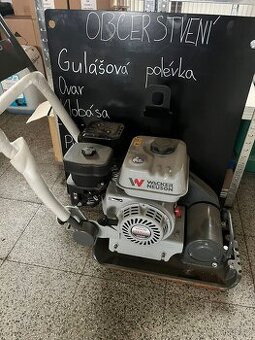 OBČERSTVENÍ
Gulášová polévka
Ovar
Klobása
WACKER
NEUSON